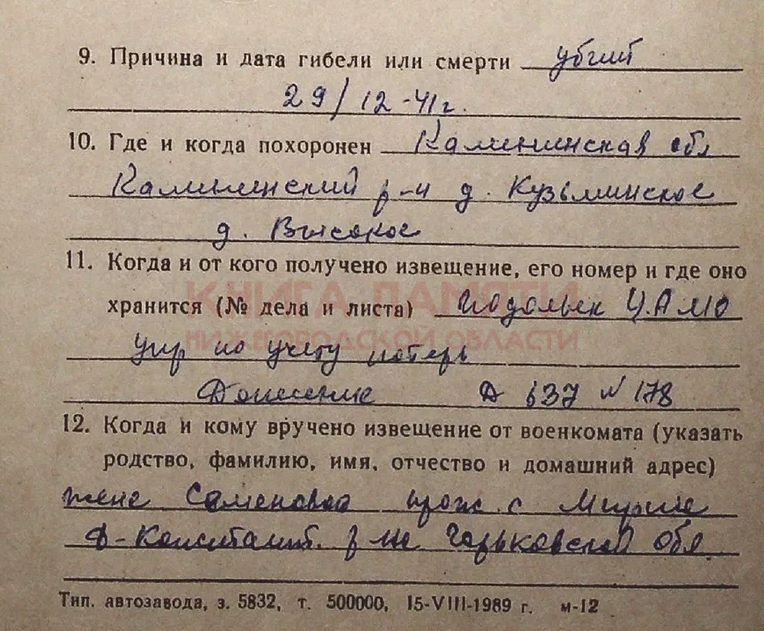 9. Причина и дата гибели или смерти убит
29/12-41г.
10. Где и когда похоронен Калининская обл
Калининский р-н д. Кузьминское
д. Высокое
11. Когда и от кого получено извещение, его номер и где оно
КНИГА ПАМЯТИ
хранится (№ дела и листа) Подольск ЦАМО
НИЖЕГОРОДСКОЙ ОБЛАСТИ
упр по учету потерь
Донесение Д 637 N 178
12. Когда и кому вручено извещение от военкомата (указать
родство, фамилию, имя, отчество и домашний адрес)
жене прож. с
Д-Констант. р-не Горьковской обл.
Тип. автозавода, з. 5832, т. 500000, 15-VIII-1989 г. м-12